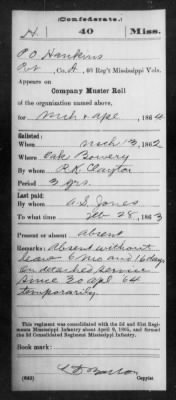 (Confederate.)
H 40 Miss.
P O Hankins
Pvt, Co. A, 40 Reg't Mississippi Vols.
Appears on
Company Muster Roll
of the organization named above,
for Mch & Apl, 1864
Enlisted:
When Mch 13, 1862
Where Oak Bowery
By whom R K Clayton
Period 3 yrs.
Last paid:
By whom A.S. Jones
To what time Feb 28, 1863
Present or absent absent
Remarks: Absent without
leave 6 mo and 16 days
On detached service
since 30 apl 64
temporarily
This regiment was consolidated with the 3d and 31st Regiments
Mississippi Infantry about April 9, 1865, and formed
the 3d Consolidated Regiment Mississippi Infantry.
Book mark:
(642) Copyist.